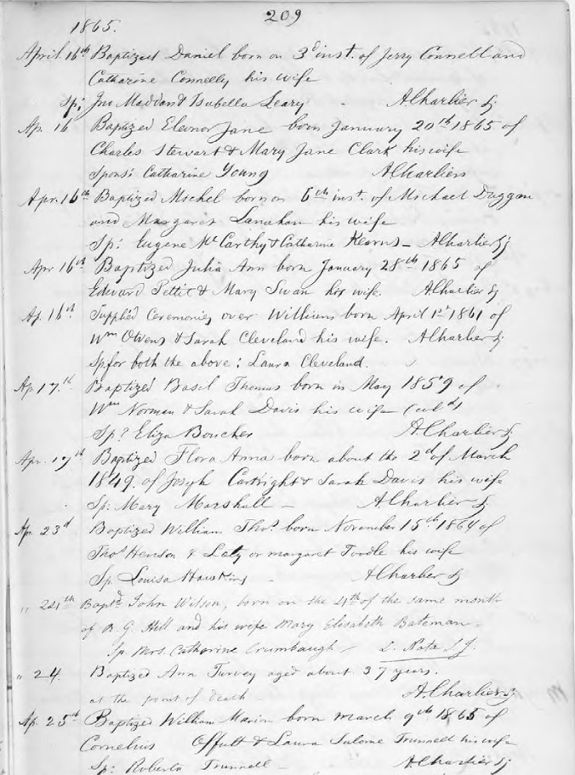 209
1865.
April 16th Baptized Daniel born on 3d inst. of Jerry Connell and
Catharine Connelly his wife
Sp: Jno Madden & Isabella Leary - ACharlier Sj
Ap. 16 Baptized Eleonor Jane born January 20th 1865 of
Charles Stewart & Mary Jane Clark his wife
Spons: Catharine Young ACharlier
Apr. 16th Baptized Michel born on 6th inst. of Michael Duggan
and Margaret Lanahan his wife
Sp: Eugene McCarthy & Catharine Kearns - ACharlier Sj
Apr 16th Baptized Julia Ann born January 28th 1865 of
Edward Pettit & Mary Swan his wife. ACharlier Sj
Ap. 16th Supplied Ceremonies over William born April 1st 1861 of
Wm Owens & Sarah Cleveland his wife. ACharlier Sj
Sp for both the above: Laura Cleveland.
Ap 17th Baptized Basel Thomas born in May 1859 of
Wm Norman & Sarah Davis his wife (cold)
Sp? Eliza Bouches ACharlier Sj
Apr. 17th Baptized Flora Anna born about the 2d of March
1849. of Joseph Cartright & Sarah Davis his wife
Sp: Mary Marshall - ACharlier Sj
Ap. 23d Baptized William Thos. born November 15th 1864 of
Thos Henson & Laty or Margaret Toodle his wife
Sp. Louisa Hawkins ACharlier Sj
" 24th Baptd. John Wilson, born on the 4th of the same month
of R. G. Hell and his wife Mary Elisabeth Bateman.
Sp. Mrs. Catharine Crumbaugh - L. Nota S.J.
" 24. Baptized Ann Turvey aged about 37 years.
at the point of death ACharlier Sj
Ap. 25th Baptized William Marion born March 9th 1865 of
Cornelius Offutt & Laura Salome Trunnell his wife
Sp: Roberta Trunnell - ACharlier Sj